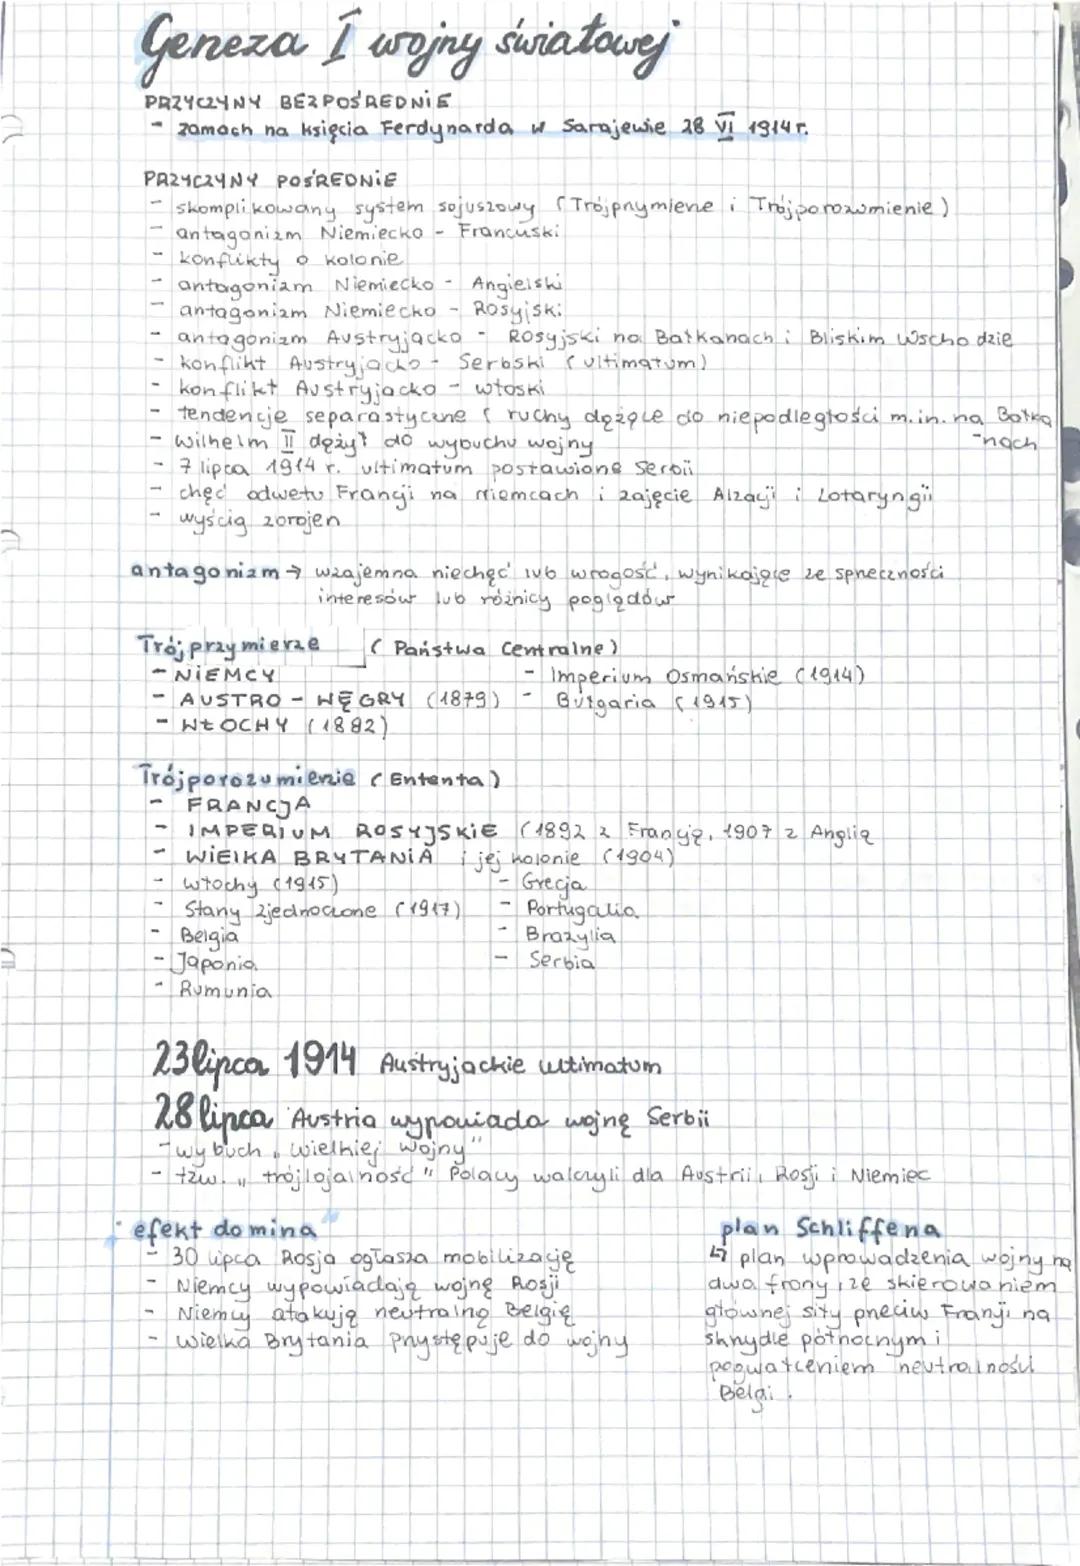 Geneza I wojny światowej
PRZYCZYNY BEZPOŚREDNIE
- zamach na księcia Ferdynarda w Sarajewie 28 VI 1914 r.
PRZYCZYNY POŚREDNIE
- skomplikowany system sojuszowy (Trójprzymierze i Trójporozumienie)
- antagonizm Niemiecko - Francuski
- konflikty o kolonie
- antagonizm Niemiecko - Angielski
- antagonizm Niemiecko - Rosyjski
- antagonizm Austryjacko - Rosyjski na Bałkanach i Bliskim Wschodzie
- konflikt Austryjacko - Serbski (ultimatum)
- konflikt Austryjacko - włoski
- tendencje separastyczne (ruchy dążące do niepodległości m.in. na Bałka
-nach
- Wilhelm II dążył do wybuchu wojny
- 7 lipca 1914 r. ultimatum postawione Serbii
- chęć odwetu Francji na Niemcach i zajęcie Alzacji i Lotaryngii
- wyścig zbrojeń
antagonizm → wzajemna niechęć lub wrogość, wynikające ze sprzeczności
interesów lub różnicy poglądów
Trójprzymierze (Państwa Centralne)
- NIEMCY - Imperium Osmańskie (1914)
- AUSTRO - WĘGRY (1879) - Bułgaria (1915)
- WŁOCHY (1882)
Trójporozumienie (Ententa)
- FRANCJA
- IMPERIUM ROSYJSKIE (1892 z Francją, 1907 z Anglią
- WIELKA BRYTANIA i jej kolonie (1904)
- włochy (1915) - Grecja
- Stany zjednoczone (1917) - Portugalia
- Belgia - Brazylia
- Japonia - Serbia
- Rumunia
23 lipca 1914 Austryjackie ultimatum
28 lipca Austria wypowiada wojnę Serbii
- wybuch „Wielkiej Wojny"
- tzw. „trójlojalność" Polacy walczyli dla Austrii, Rosji i Niemiec
efekt domina
- 30 lipca Rosja ogłasza mobilizację
- Niemcy wypowiadają wojnę Rosji
- Niemcy atakują neutralną Belgię
- Wielka Brytania przystępuje do wojny
plan Schliffena
↳ plan wprowadzenia wojny na
dwa frony, ze skierowaniem
głównej siły przeciw Franji na
skrzydle północnym i
pogwałceniem neutralności
Belgi.